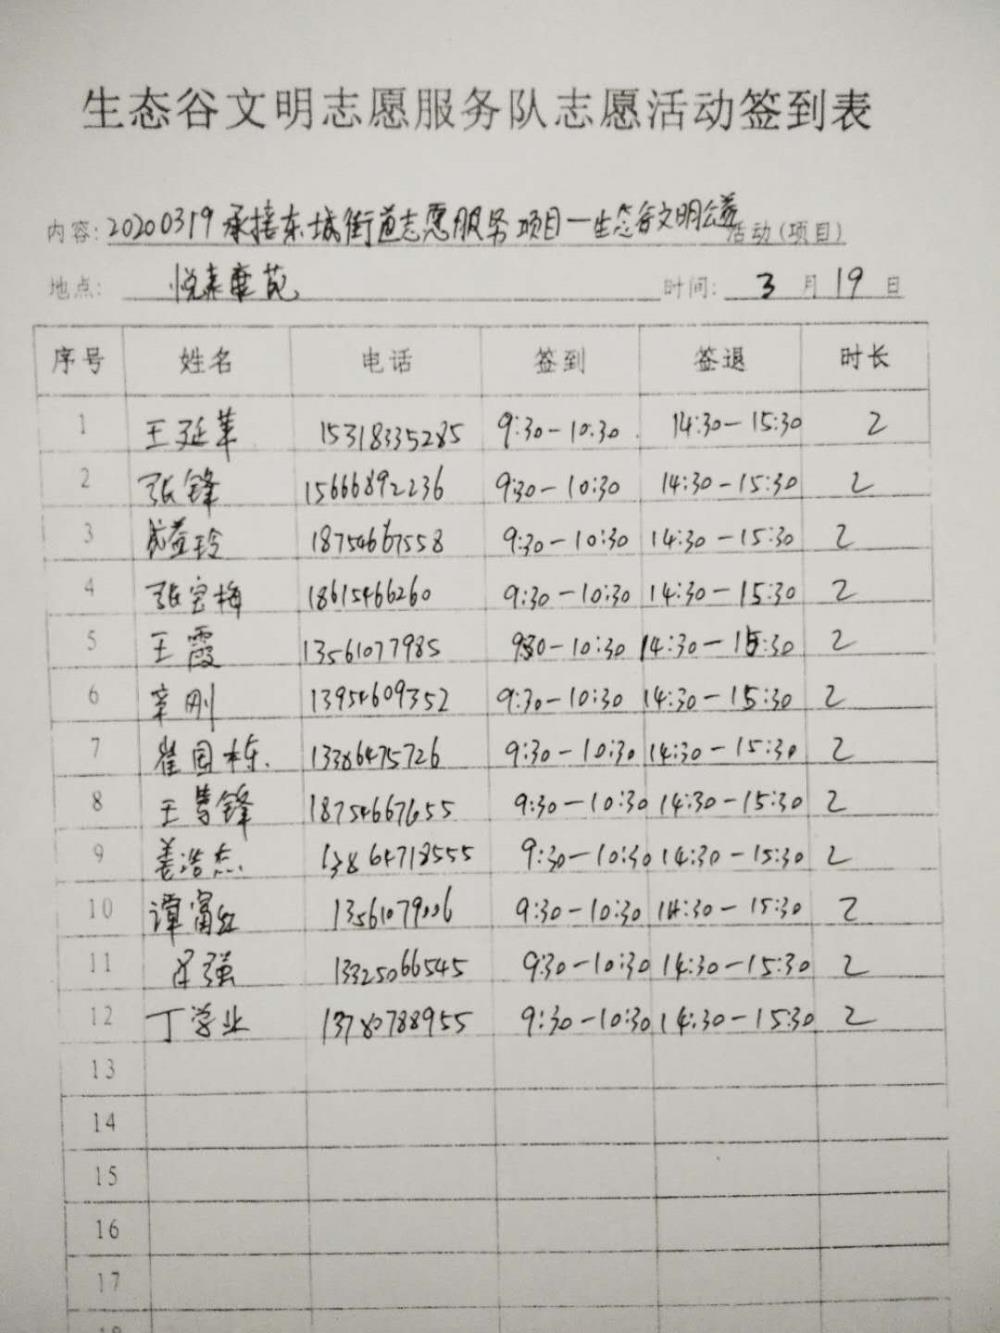 生态谷文明志愿服务队志愿活动签到表
内容: 20200319承接东城街道志愿服务项目—生态谷文明公益活动(项目)
地点: 悦来 苑 时间: 3 月 19 日
序号 姓名 电话 签到 签退 时长
1 王延革 15318335285 9:30-10:30 14:30-15:30 2
2 张锋 15666892236 9:30-10:30 14:30-15:30 2
3 成益玲 18754667558 9:30-10:30 14:30-15:30 2
4 张宝梅 18615466260 9:30-10:30 14:30-15:30 2
5 王霞 13561077985 9:30-10:30 14:30-15:30 2
6 辛刚 13954609352 9:30-10:30 14:30-15:30 2
7 崔国栋 13386475726 9:30-10:30 14:30-15:30 2
8 王 锋 18754667655 9:30-10:30 14:30-15:30 2
9 姜浩杰 13864718555 9:30-10:30 14:30-15:30 2
10 谭富红 13561079006 9:30-10:30 14:30-15:30 2
11 强 13325066545 9:30-10:30 14:30-15:30 2
12 丁学业 13780788955 9:30-10:30 14:30-15:30 2
13
14
15
16
17
18